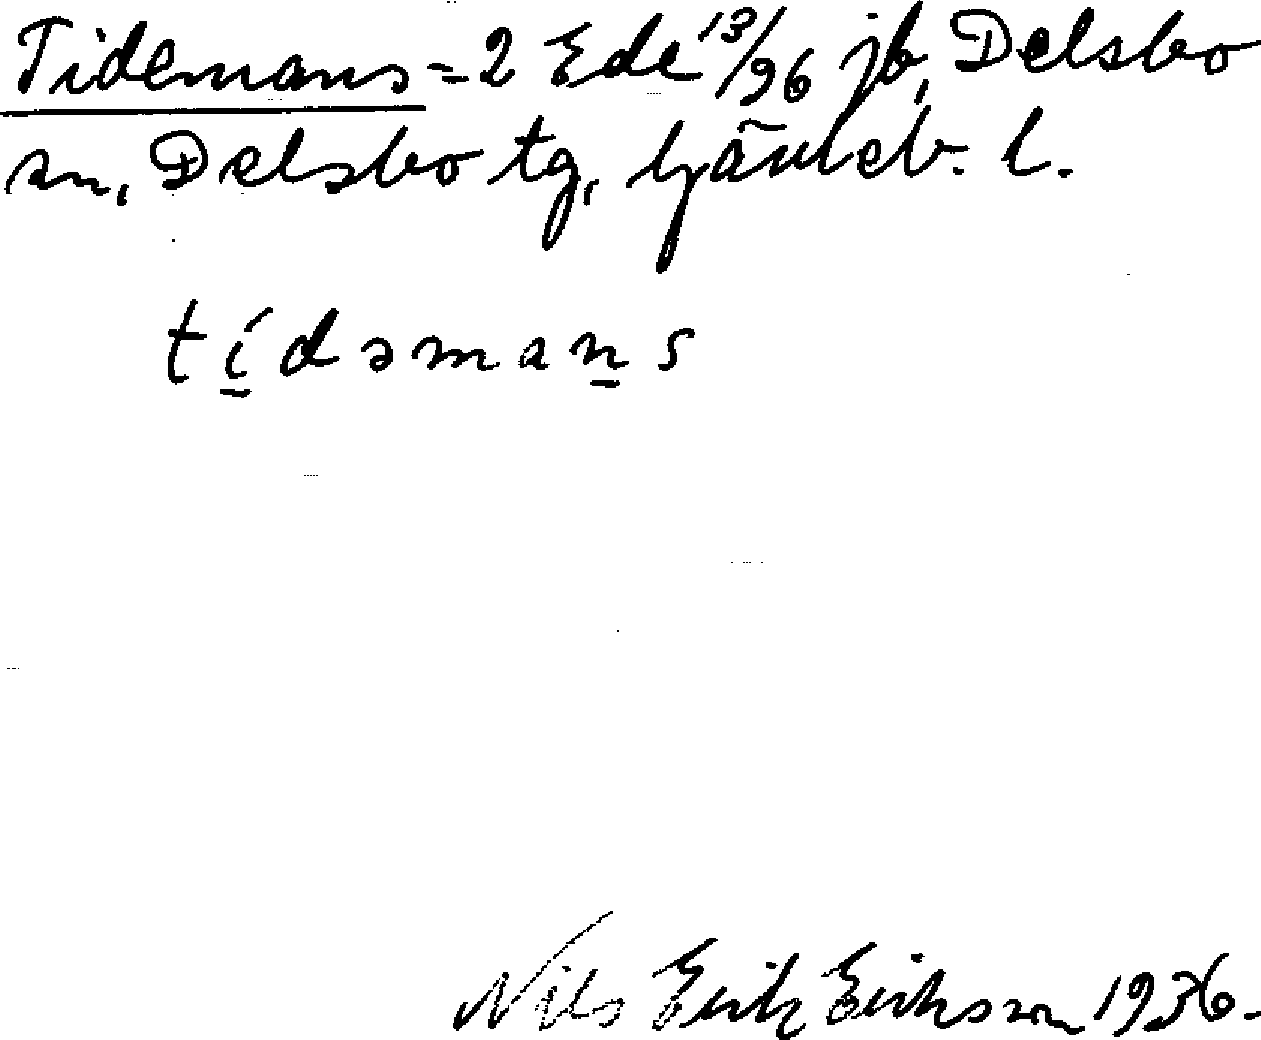 Tidemans = 2 Ede 13/96 jb, Delsbo
sn, Delsbo tg, Gävleb. l.
tídəmans
Nils Erik Eriksson 1936.